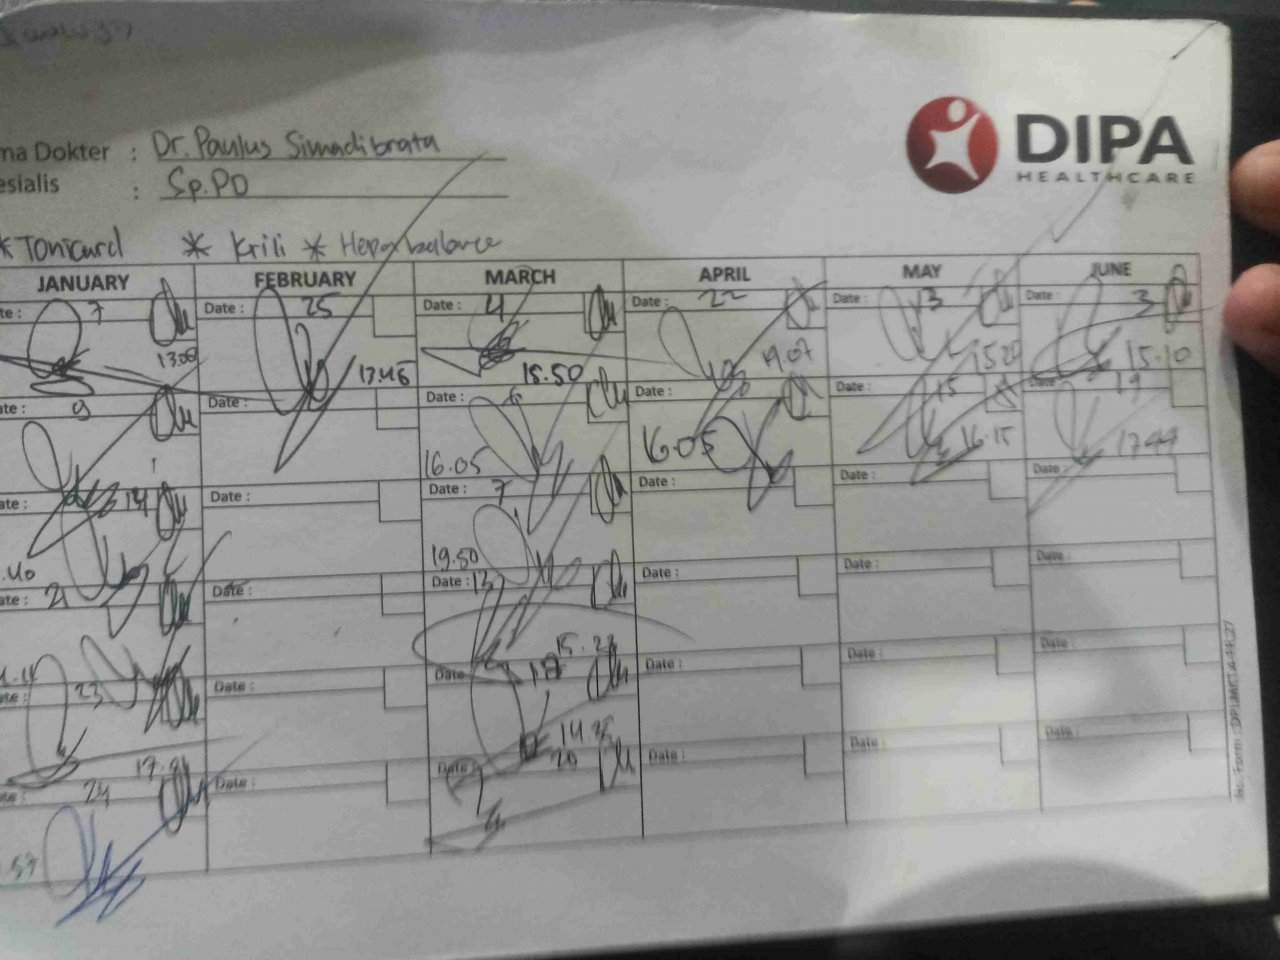 DIPA
HEALTHCARE
ma Dokter : Dr. Paulus Simadibrata
esialis : Sp.PD
* Tonicard * Krili * Hepabalance
JANUARY FEBRUARY MARCH APRIL MAY JUNE
te : 7 Date : 25 Date : 4 Date : 22 Date : 13 Date : 3
13.00 17.45 15.50 19.07 15.20 15.10
ate : 9 Date : Date : 6 Date : Date : 15 Date : 19
16.05 16.05 16.15 17.44
ate : 14 Date : Date : 7 Date : Date : Date :
.40 19.50
ate : 21 Date : Date : 13 Date : Date : Date :
15.23
te : 23 Date : Date : Date : Date : Date :
17.
te : 24 Date : Date : 20 Date : Date : Date :